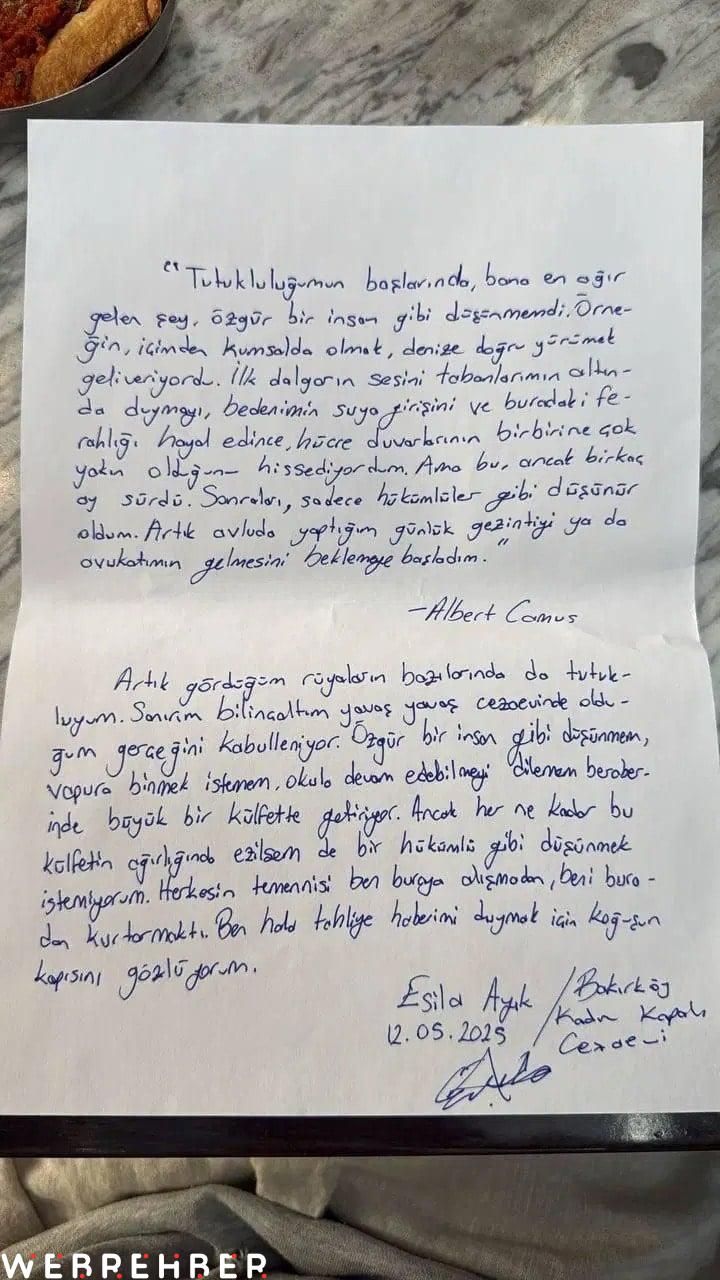 "Tutukluluğumun başlarında, bana en ağır
gelen şey, özgür bir insan gibi düşünmemdi. Örne-
ğin, içimden kumsalda olmak, denize doğru yürümek
geliveriyordu. İlk dalgaların sesini tabanlarımın altın-
da duymayı, bedenimin suya girişini ve buradaki fe-
rahlığı hayal edince, hücre duvarlarının birbirine çok
yakın olduğunu hissediyordum. Ama bu, ancak birkaç
ay sürdü. Sonraları, sadece hükümlüler gibi düşünür
oldum. Artık avluda yaptığım günlük gezintiyi ya da
avukatımın gelmesini beklemeye başladım."
-Albert Camus
Artık gördüğüm rüyaların bazılarında da tutuk-
luyum. Sanırım bilinçaltım yavaş yavaş cezaevinde oldu-
ğum gerçeğini kabulleniyor. Özgür bir insan gibi düşünmem,
vapura binmek istemem, okula devam edebilmeyi dilemem beraber-
inde büyük bir külfette getiriyor. Ancak her ne kadar bu
külfetin ağırlığında ezilsem de bir hükümlü gibi düşünmek
istemiyorum. Herkesin temennisi ben buraya alışmadan, beni bura-
dan kurtarmaktı. Ben hala tahliye haberimi duymak için koğuşun
kapısını gözlüyorum.
Esila Ayık / Bakırköy
12.05.2025 / Kadın Kapalı
Cezaevi
WEBREHBER